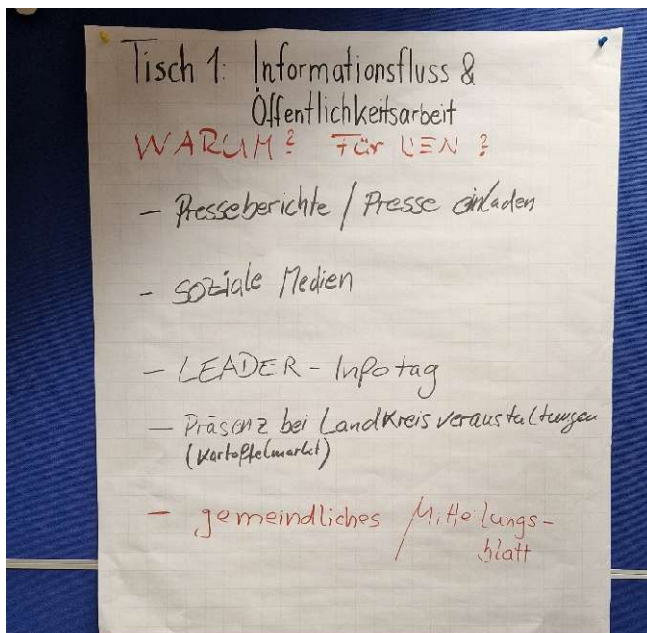 Tisch 1: Informationsfluss &
Öffentlichkeitsarbeit
WARUM? Für WEN?
- Presseberichte / Presse einladen
- soziale Medien
- LEADER-Infotag
- Präsenz bei Landkreisveranstaltungen
(Kartoffelmarkt)
- gemeindliches Mitteilungs-
blatt